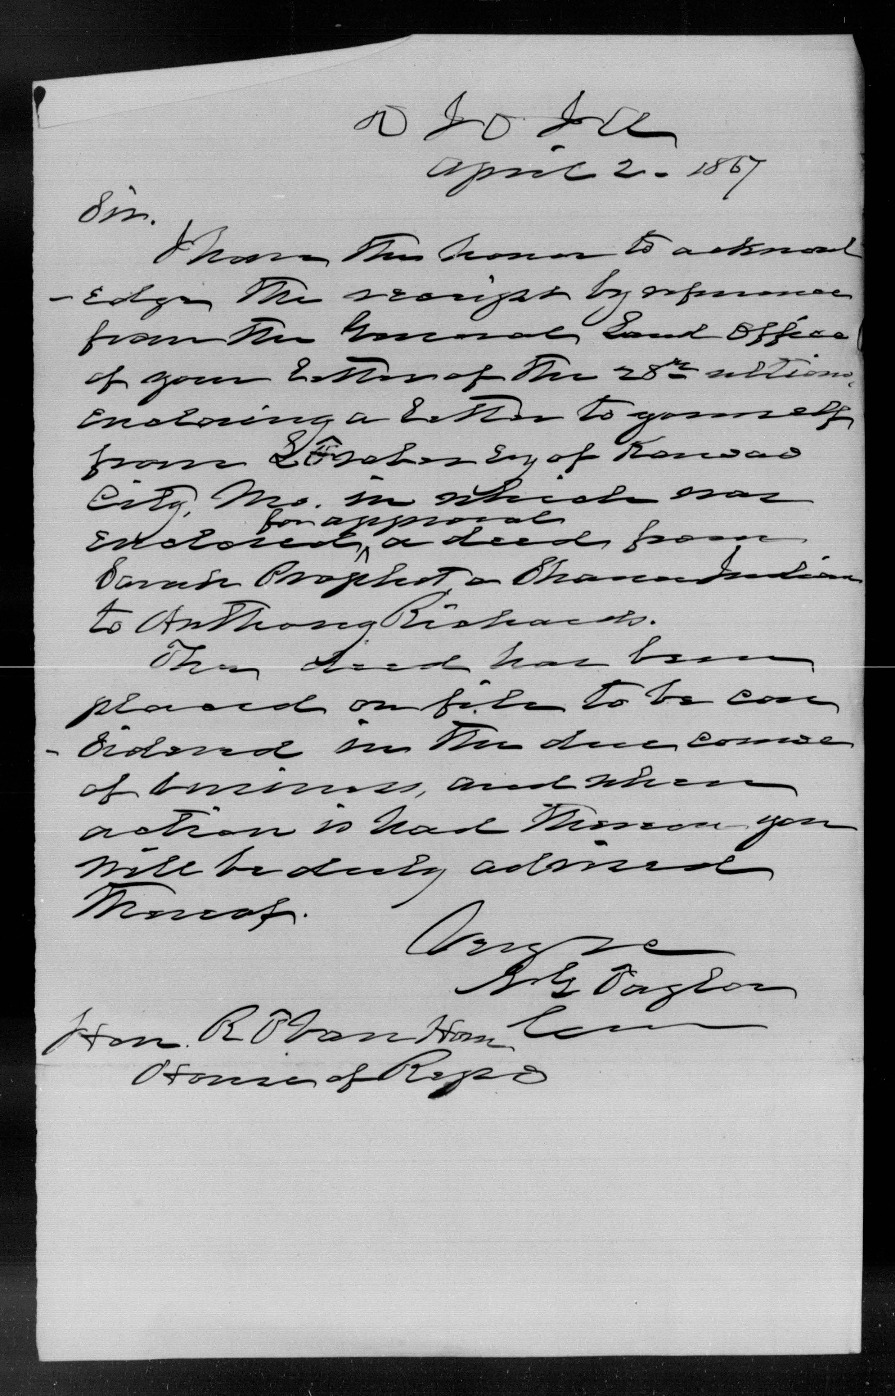 D I O I A
April 2. 1867
Sir.
I have the honor to acknowl
-edge the receipt by reference
from the General Land Office
of your letter of the 28th ultimo,
enclosing a letter to yourself
from Esq of Kansas
City, Mo. in which was
for approval
enclosed, a deed from
Sarah Prophet a Shawnee Indian
to Anthony Richards.
The deed has been
placed on file to be con
-sidered in the due course
of business, and when
action is had thereon you
will be duly advised
thereof.
Very re
N G Taylor
Com
Hon. R T Van Horn
House of Reps